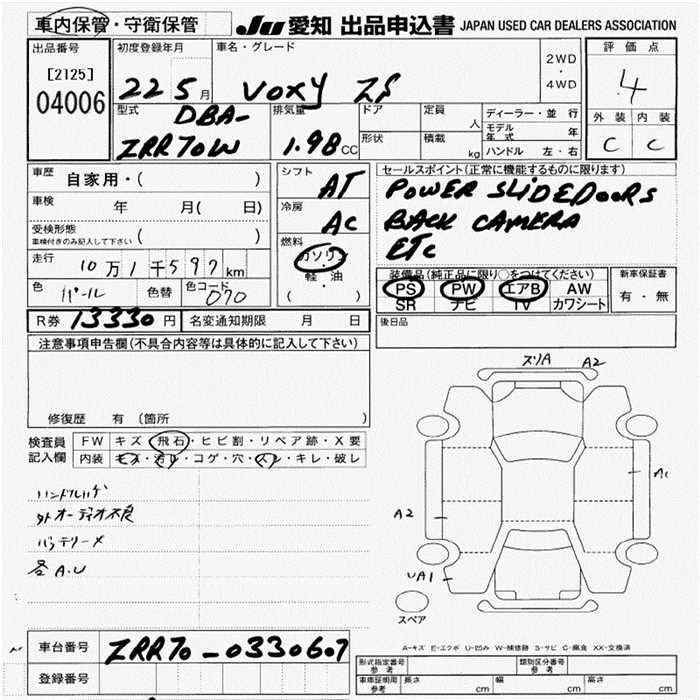 車内保管・守衛保管
JU 愛知 出品申込書 JAPAN USED CAR DEALERS ASSOCIATION
出品番号 初度登録年月 車名・グレード 2WD ・ 4WD 評価点
[2125]
04006
22 5月 VOXY ZS 4
型式 DBA-ZRR70W
排気量 1.98 CC
ドア 定員 人 ディーラー・並行
形状 積載 kg モデル年式 年
ハンドル 左・右
外装 内装
C C
車歴 自家用・( )
車検 年 月( 日)
受検形態 ( )
車検付きのみ記入して下さい
走行 10万1千597km
色 パール 色替 色コード 070
シフト AT
冷房 AC
燃料 ガソリン
・
軽油
( )
セールスポイント(正常に機能するものに限ります)
POWER SLIDEDOORS
BACK CAMERA
ETC
装備品(純正品に限り○をつけてください) 新車保証書
PS PW エアB AW 有・無
SR ナビ TV カワシート
後日品
R券 13330円 名変通知期限 月 日
注意事項申告欄(不具合内容等は具体的に記入して下さい)
修復歴 有(箇所 )
検査員記入欄
FW キズ・飛石・ヒビ割・リペア跡・X要
内装 キズ・汚れ・コゲ・穴・スレ・キレ・破レ
ハンドルハゲ
外オーディオ不良
バッテリーメ
各A.U
ズリA A2
A1
A2
UA1
スペア
A-キズ E-エクボ U-凹み W-補修跡 S-サビ C-腐食 XX-交換済
車台番号 ZRR70-0330607
登録番号
形式指定番号 参考 類別区分番号 参考
車庫証明用 参考 長さ cm 幅 cm 高さ cm